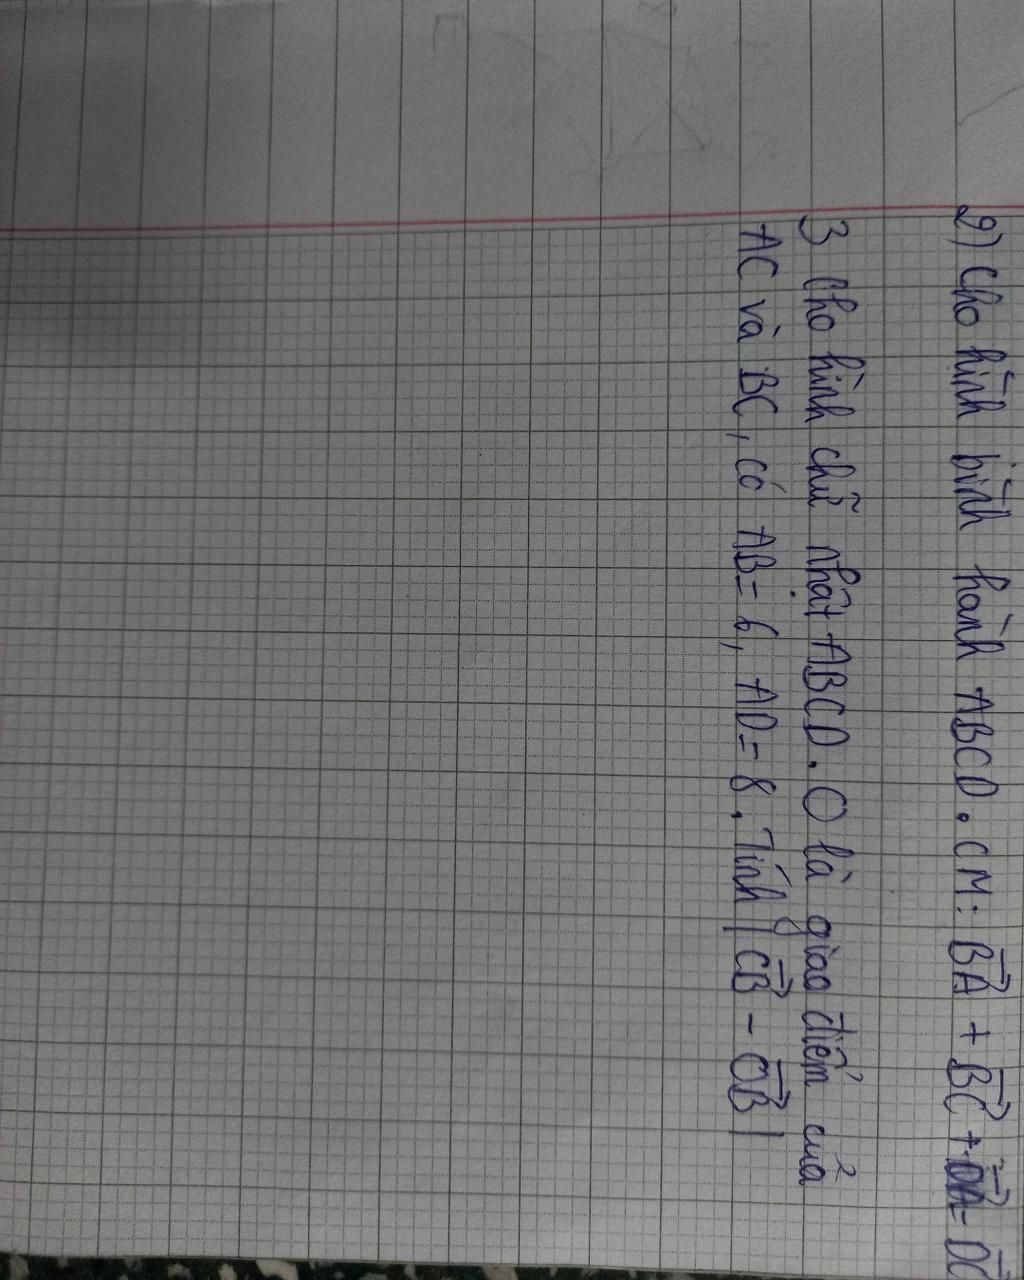 2) Cho hình bình hành ABCD. CM: \overrightarrow{BA} + \overrightarrow{BC} +
3 Cho hình chữ nhật ABCD. O là giao điểm của
AC và BC, có AB = 6, AD = 8. Tính | \overrightarrow{CB} - \overrightarrow{OB} |